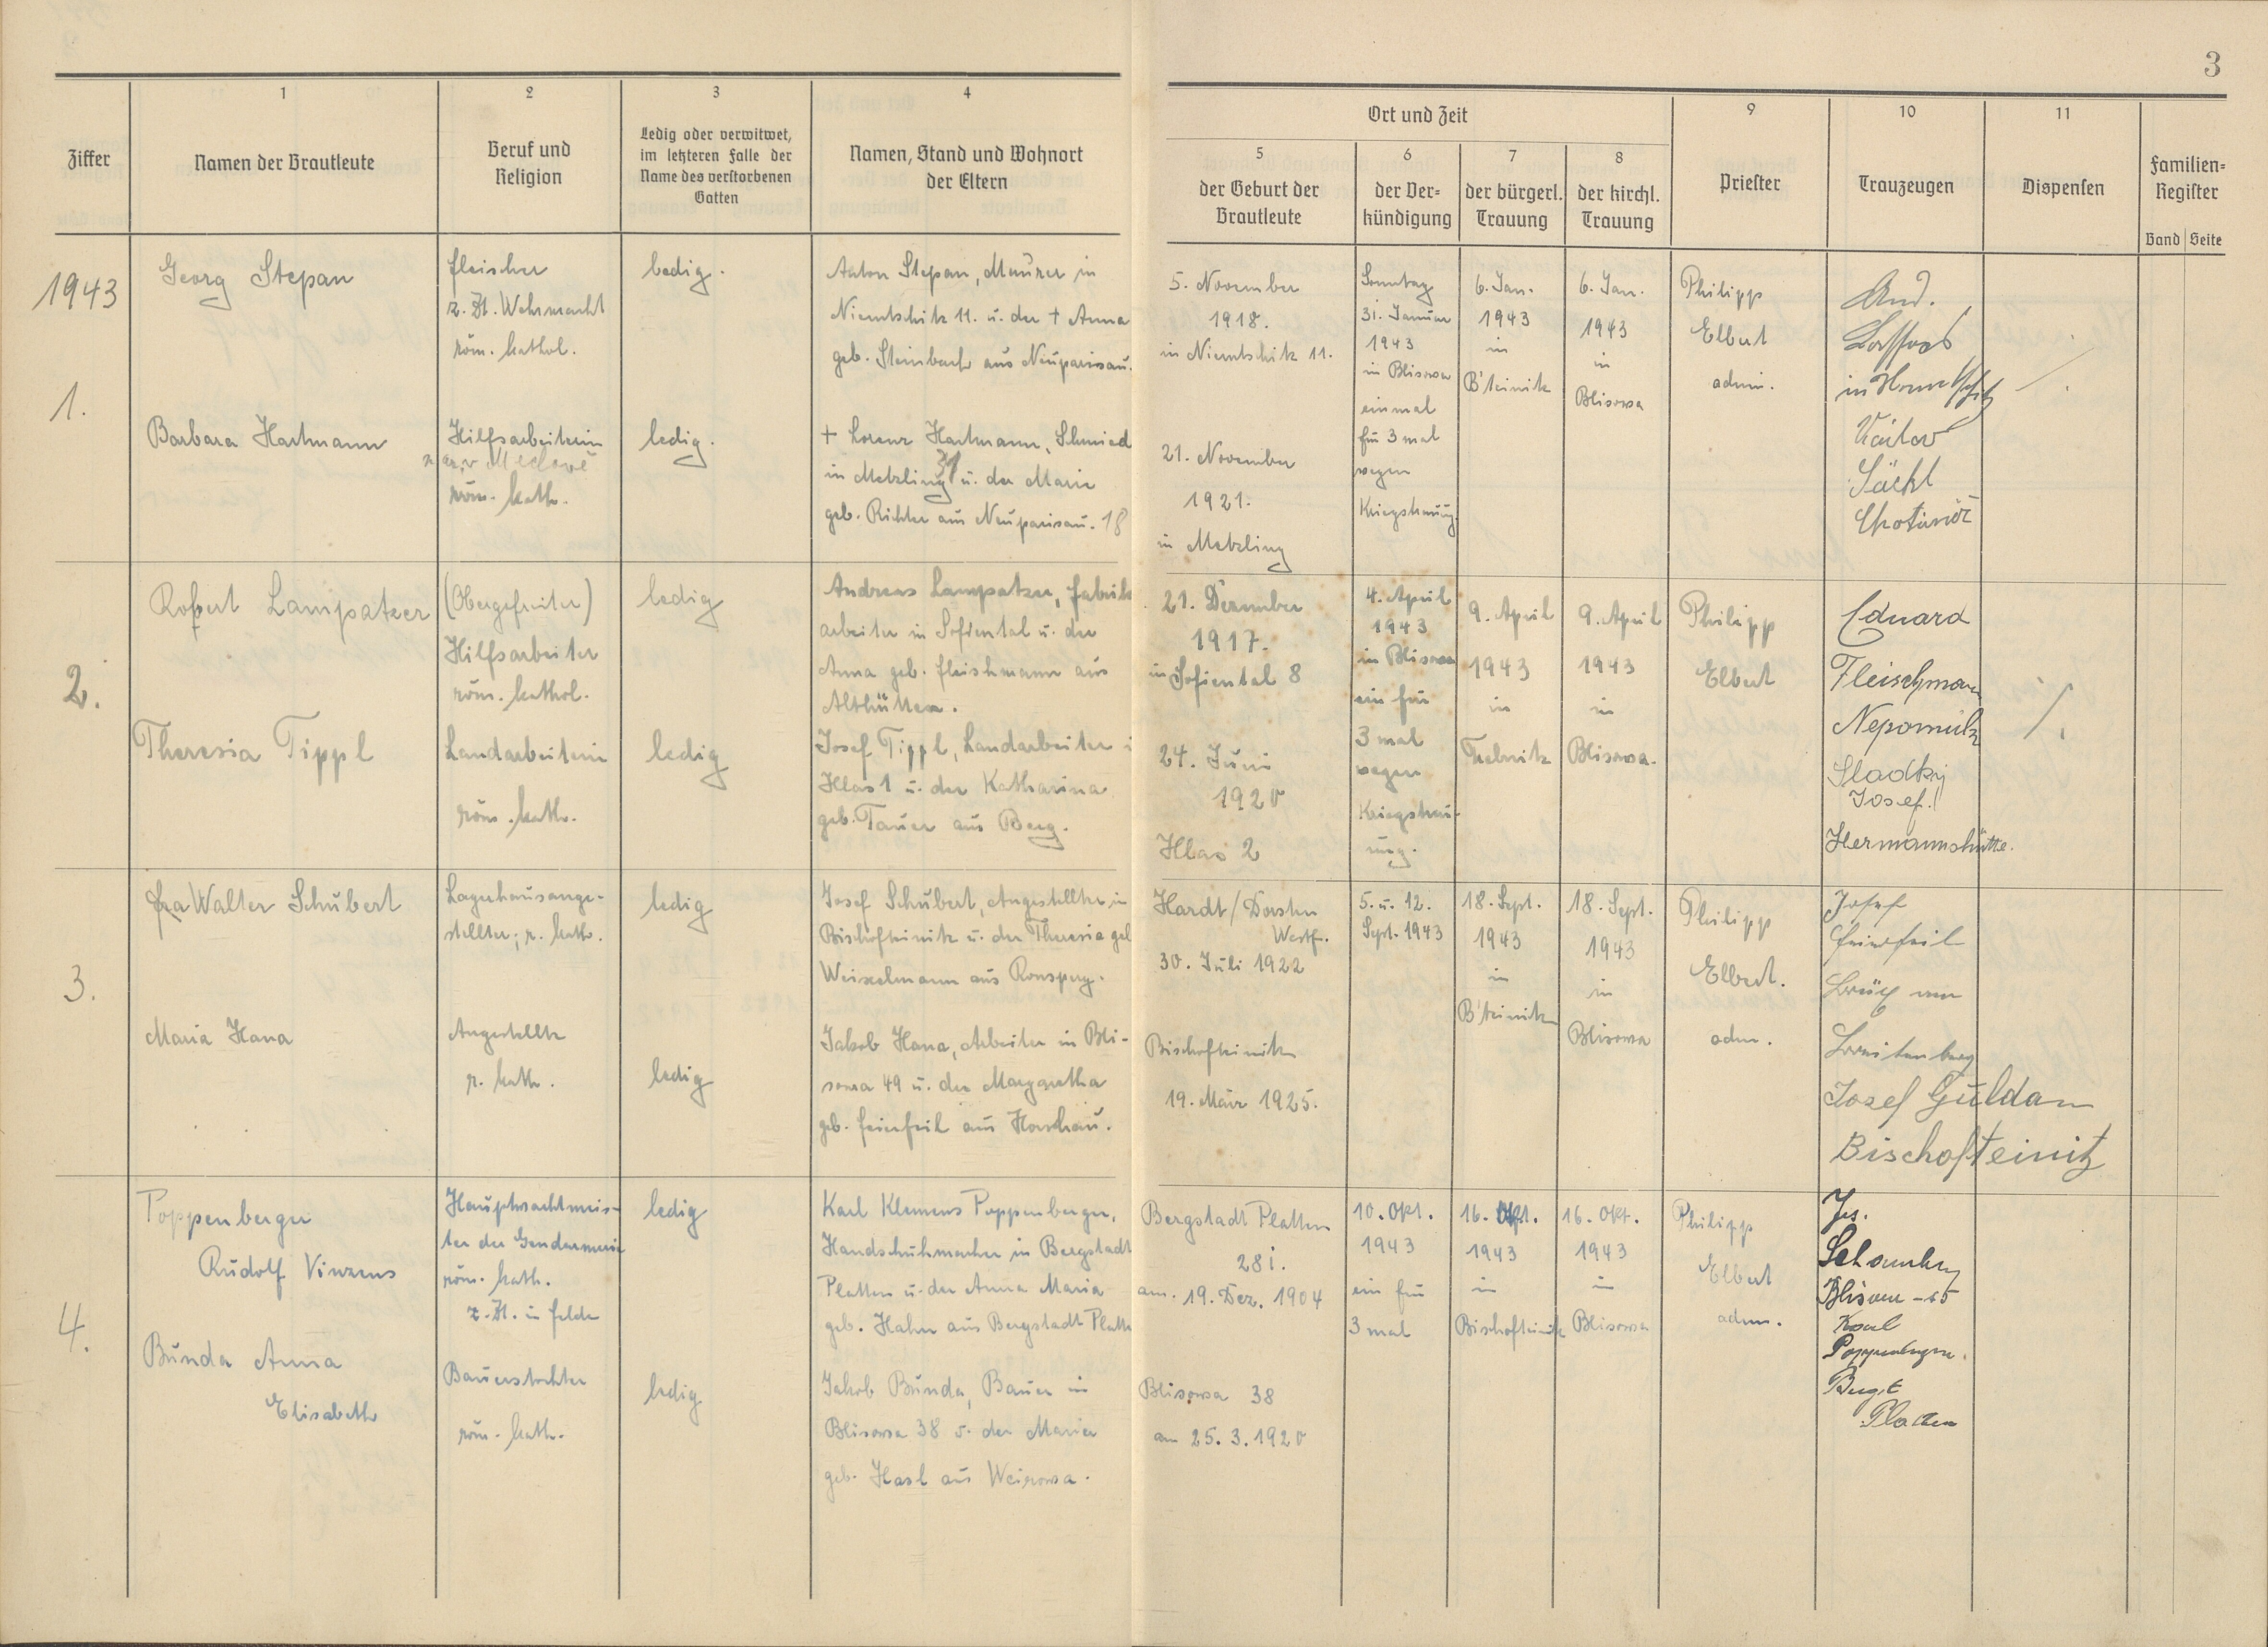 3
Ziffer
1
Namen der Brautleute
2
Beruf und
Religion
3
Ledig oder verwitwet,
im letzteren Falle der
Name des verstorbenen
Gatten
4
Namen, Stand und Wohnort
der Eltern
Ort und Zeit
5
der Geburt der
Brautleute
6
der Ver-
kündigung
7
der bürgerl.
Trauung
8
der kirchl.
Trauung
9
Priester
10
Trauzeugen
11
Dispensen
Familien-
Register
Band Seite
1943
1.
Georg Stepan
Fleischer
z. Zt. Wehrmacht
röm. kathol.
ledig.
Anton Stepan, Maurer in
Niemtschitz 11. u. der † Anna
geb. Steinbach aus Neuparisau.
5. November
1918.
in Niemtschitz 11.
Sonntag
31. Januar
1943
in Blisowa
einmal
für 3 mal
wegen
Kriegstrauung.
6. Jan.
1943
in
B'teinitz
6. Jan.
1943
in
Blisowa
Philipp
Elbert
admin.
And.
in
Barbara Hartmann
Hilfsarbeiterin
röm. kath.
ledig.
† Lorenz Hartmann, Schmied
in Metzling 31 u. der Marie
geb. Richter aus Neuparisau. 18
21. November
1921.
in Metzling
2.
Robert Lampatzer
(Obergefreiter)
Hilfsarbeiter
röm. kathol.
ledig
Andreas Lampatzer, Fabriks
arbeiter in Sofiental u. der
Anna geb. Fleischmann aus
Althütten.
21. Dezember
1917.
in Sofiental 8
4. April
1943
in Blisowa
ein für
3 mal
wegen
Kriegstrau-
ung.
9. April
1943
in
9. April
1943
in
Blisowa.
Philipp
Elbert
Eduard
Fleischmann
Nepomuk
Sladky
Josef.
Hermannshütte.
/.
Theresia Tippl
Landarbeiterin
röm. kath.
ledig
Josef Tippl, Landarbeiter i
Hlas 1 u. der Katharina
geb. Tauer aus Berg.
24. Juni
1920
Hlas 2
3.
Walter Schubert
Lagerhausange-
stellter; r. kath.
ledig
Josef Schubert, Angestellter in
Bischofteinitz u. der Theresia geb
Weixelmann aus Ronsperg.
Hardt / Dorsten
Westf.
30. Juli 1922
5. u. 12.
Sept. 1943
18. Sept.
1943
in
B'teinitz
18. Sept.
1943
in
Blisowa
Philipp
Elbert.
adm.
Josef
Feierfeil
Josef Guldan
Bischofteinitz
Maria Hana
Angestellte
r. kath.
ledig
Jakob Hana, Arbeiter in Bli-
sowa 49 u. der Margaretha
geb. Feierfeil aus Horschau.
Bischofteinitz
19. März 1925.
4.
Poppenberger
Rudolf Vinzens
Hauptwachtmeis-
ter der Gendarmerie
röm. kath.
z. Zt. in Felde
ledig
Karl Klemens Poppenberger,
Handschuhmacher in Bergstadt
Platten u. der Anna Maria
geb. Hahn aus Bergstadt Platte
Bergstadt Platten
281.
am. 19. Dez. 1904
10. Okt.
1943
ein für
3 mal
16. Okt.
1943
in
Bischofteinitz
16. Okt.
1943
in
Blisowa
Philipp
Elbert
adm.
Karl
Poppenberger.
Bergst
Platten
Bunda Anna
Elisabeth
Bauerstochter
röm. kath.
ledig
Jakob Bunda, Bauer in
Blisowa 38 u. der Maria
geb. Hasl aus Weirowa.
Blisowa 38
am 25. 3. 1920